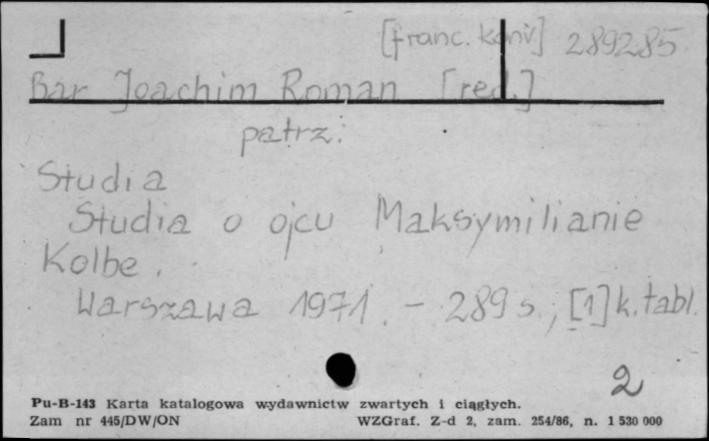 [franc. konw.] 289285
Bar Joachim Roman [red.]
patrz:
Studia
Studia o ojcu Maksymilianie
Kolbe.
Warszawa 1971. - 289 s., [1] k. tabl.
2
Pu-B-143 Karta katalogowa wydawnictw zwartych i ciągłych.
Zam nr 445/DW/ON WZGraf. Z-d 2, zam. 254/86, n. 1 530 000